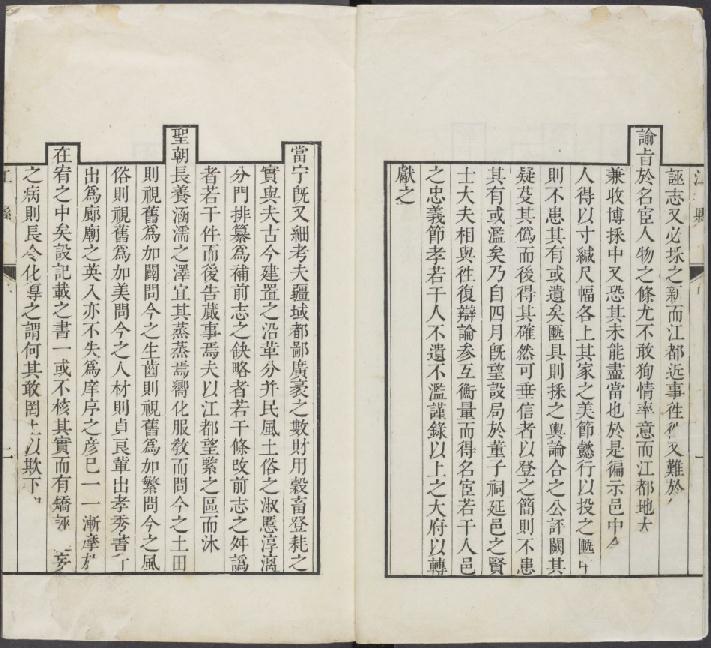 誣志又必採之新而江都近事徃徃又難於
諭㫖於名宦人物之條尤不敢狥情率意而江都地大
兼收博採中又恐其未能盡當也於是徧示邑中
人得以寸縑尺幅各上其家之美節懿行以投之匭中
則不患其有或遺矣匭具則採之輿論合之公評闕其
疑芟其僞而後得其確然可垂信者以登之簡則不患
其有或濫矣乃自四月旣望設局於董子祠延邑之賢
士大夫相與徃復辯論參互衡量而得名宦若干人邑
之忠義節孝若干人不遺不濫謹錄以上之大府以轉
獻之
當宁旣又細考夫疆域都鄙廣袤之數財用穀畜登耗之
實與夫古今建置之沿革分并民風土俗之淑慝淳漓
分門排纂爲補前志之缺略者若干條改前志之舛譌
者若干件而後告蕆事焉夫以江都望緊之區而沐
聖朝長養涵濡之澤宜其蒸蒸焉嚮化服敎而問今之土田
則視舊爲加闢問今之生齒則視舊爲加繁問今之風
俗則視舊爲加美問今之人材則貞良軰出孝秀書
出爲廊廟之英入亦不失爲庠序之彥已一一漸摩於
在宥之中矣設記載之書一或不核其實而有矯誣
之病則長令化導之謂何其敢罔上以欺下